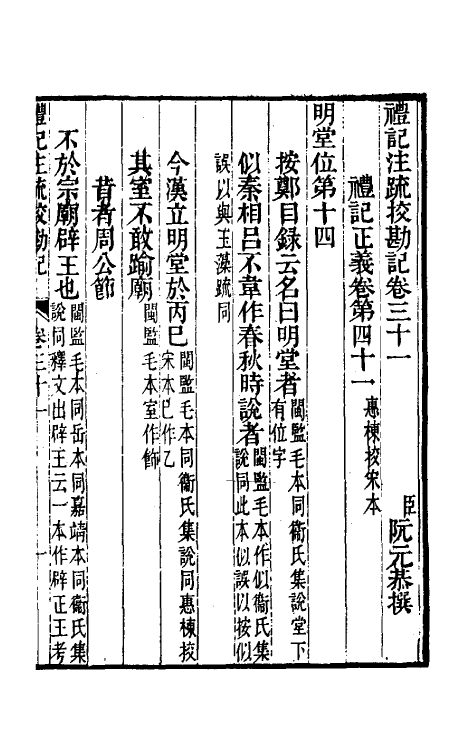 禮記注疏挍勘記卷三十一
臣阮元恭撰
禮記正義卷第四十一
惠棟挍宋本
明堂位第十四
按鄭目録云名曰明堂者
閩監毛本同衞氏集說堂下
有位字
似秦相呂不韋作春秋時說者
閩監毛本作似衞氏集
說同此本似誤以按似
誤以與玉藻疏同
今漢立明堂於丙巳
閩監毛本同衞氏集說同惠棟挍
宋本巳作乙
其室不敢踰廟
閩監毛本室作飾
昔者周公節
不於宗廟辟王也
閩監毛本同岳本同嘉靖本同衞氏集
說同釋文出辟王云一本作辟正王考
禮記注疏挍勘記
卷三十一
一